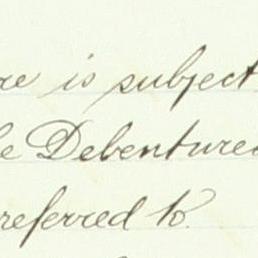 re is subject
e Debentured
referred to